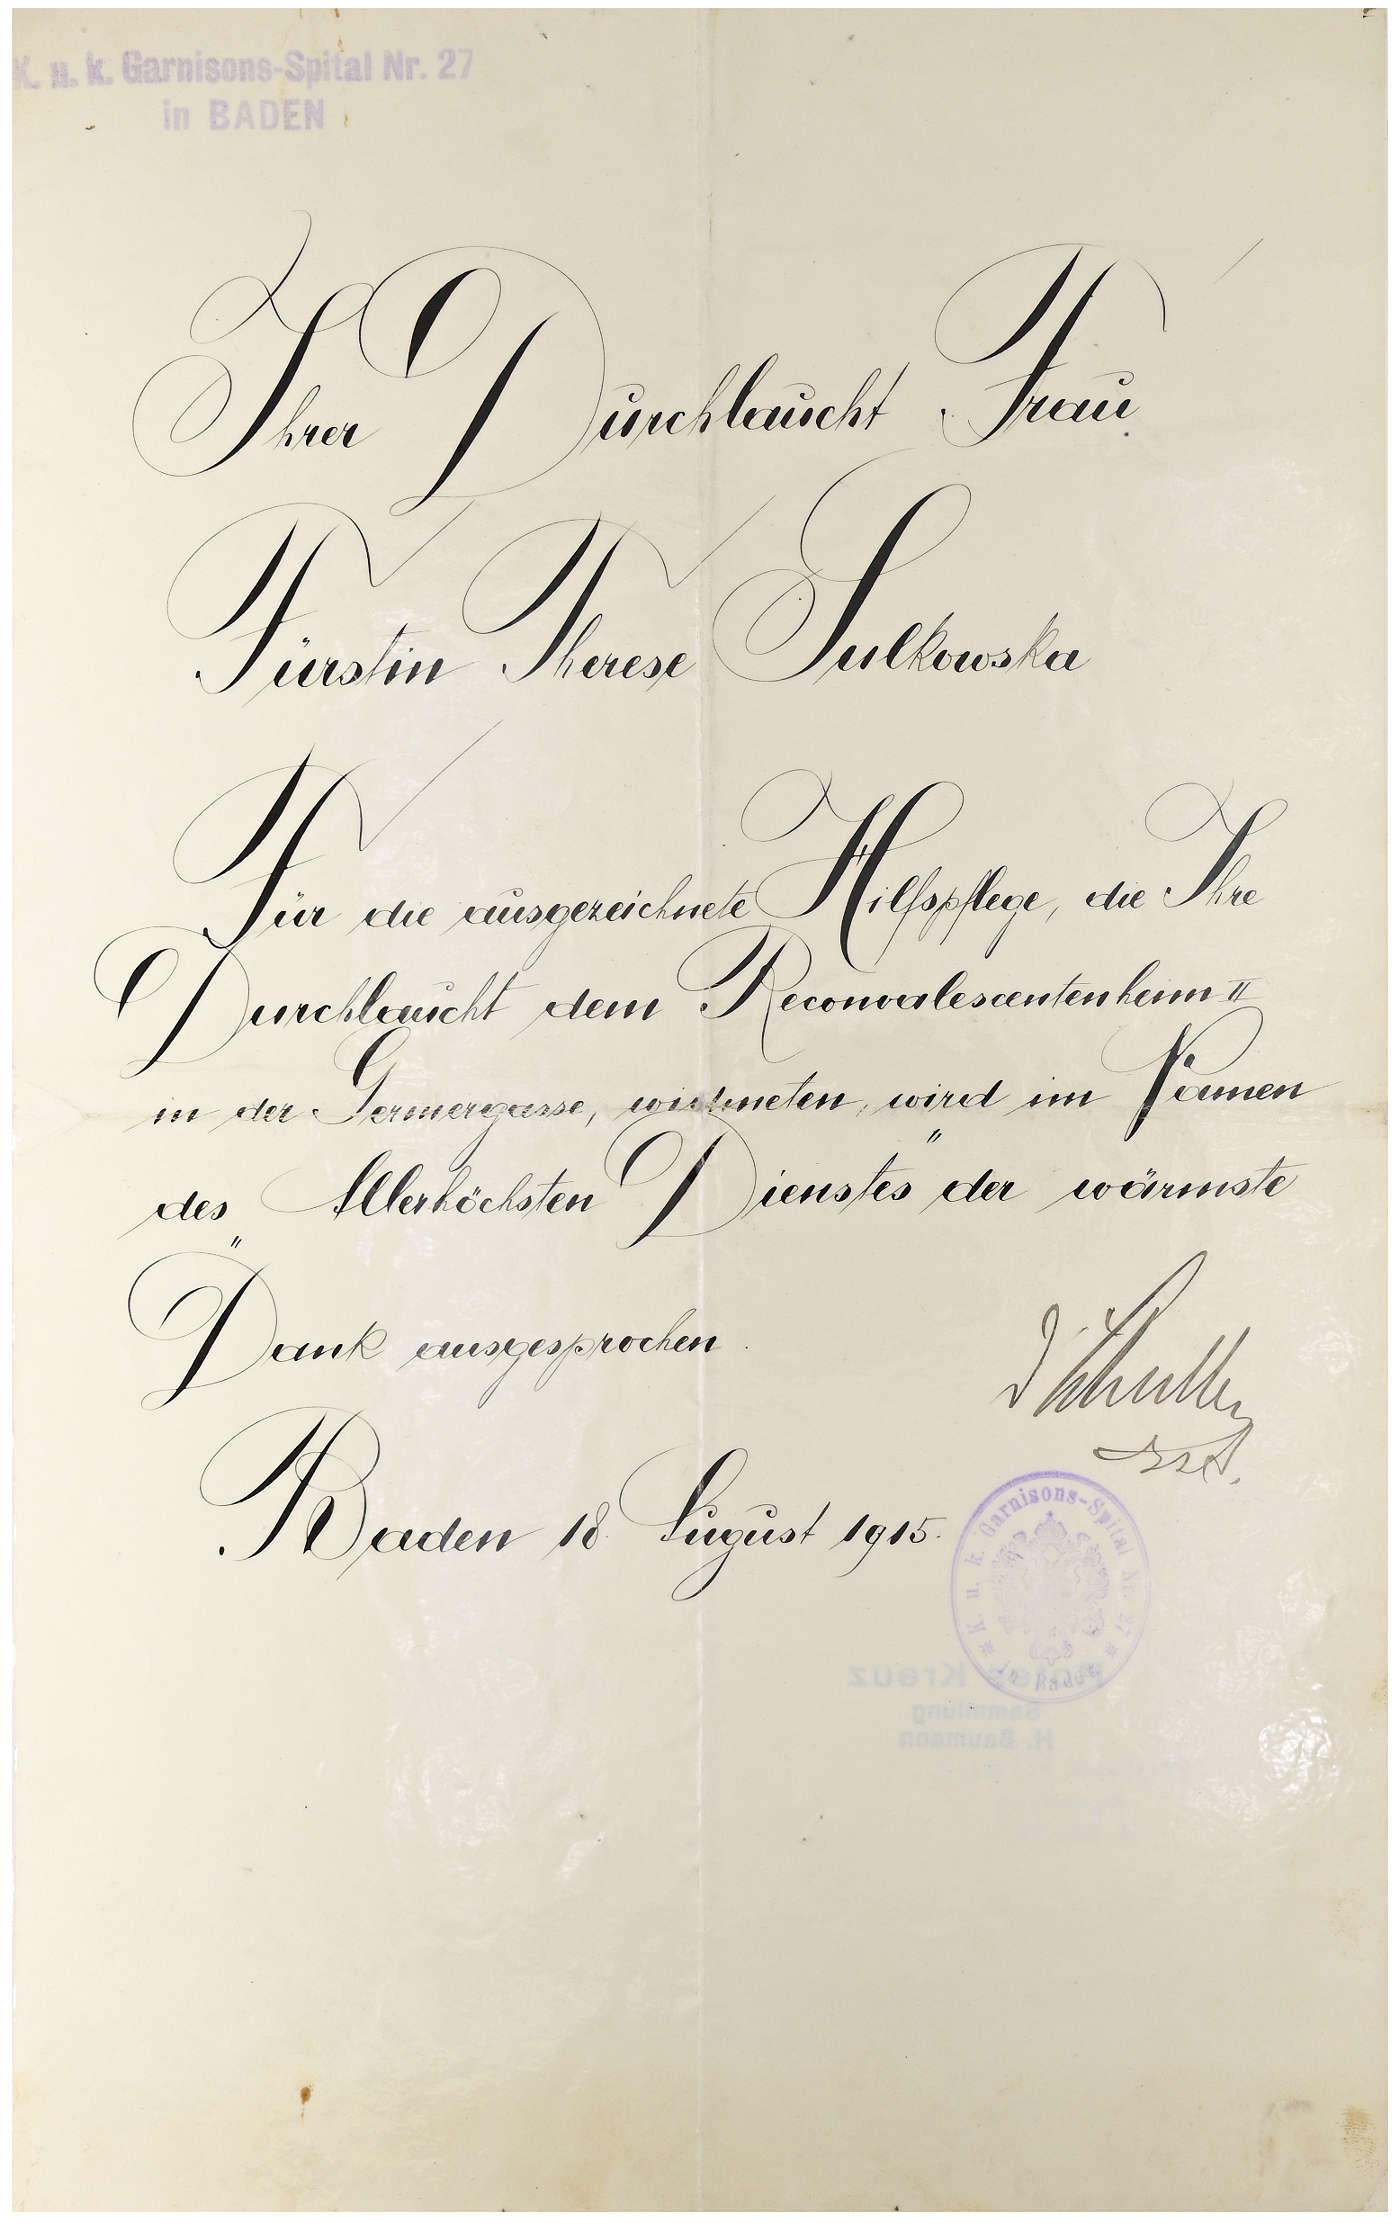 K. u. k. Garnisons-Spital Nr. 27
in BADEN
Ihrer Durchlaucht Frau
Fürstin Therese Sulkowska
Für die ausgezeichnete Hilfspflege, die Ihre
Durchlaucht dem Reconvalescentenheim II
in der Germergasse, widmeten, wird im Namen
des "Allerhöchsten Dienstes" der wärmste
Dank ausgesprochen.
Baden 18. August 1915.
K. u. k. Garnisons-Spital Nr. 27
in Baden
Rotes Kreuz
Sammlung
H. Baumann